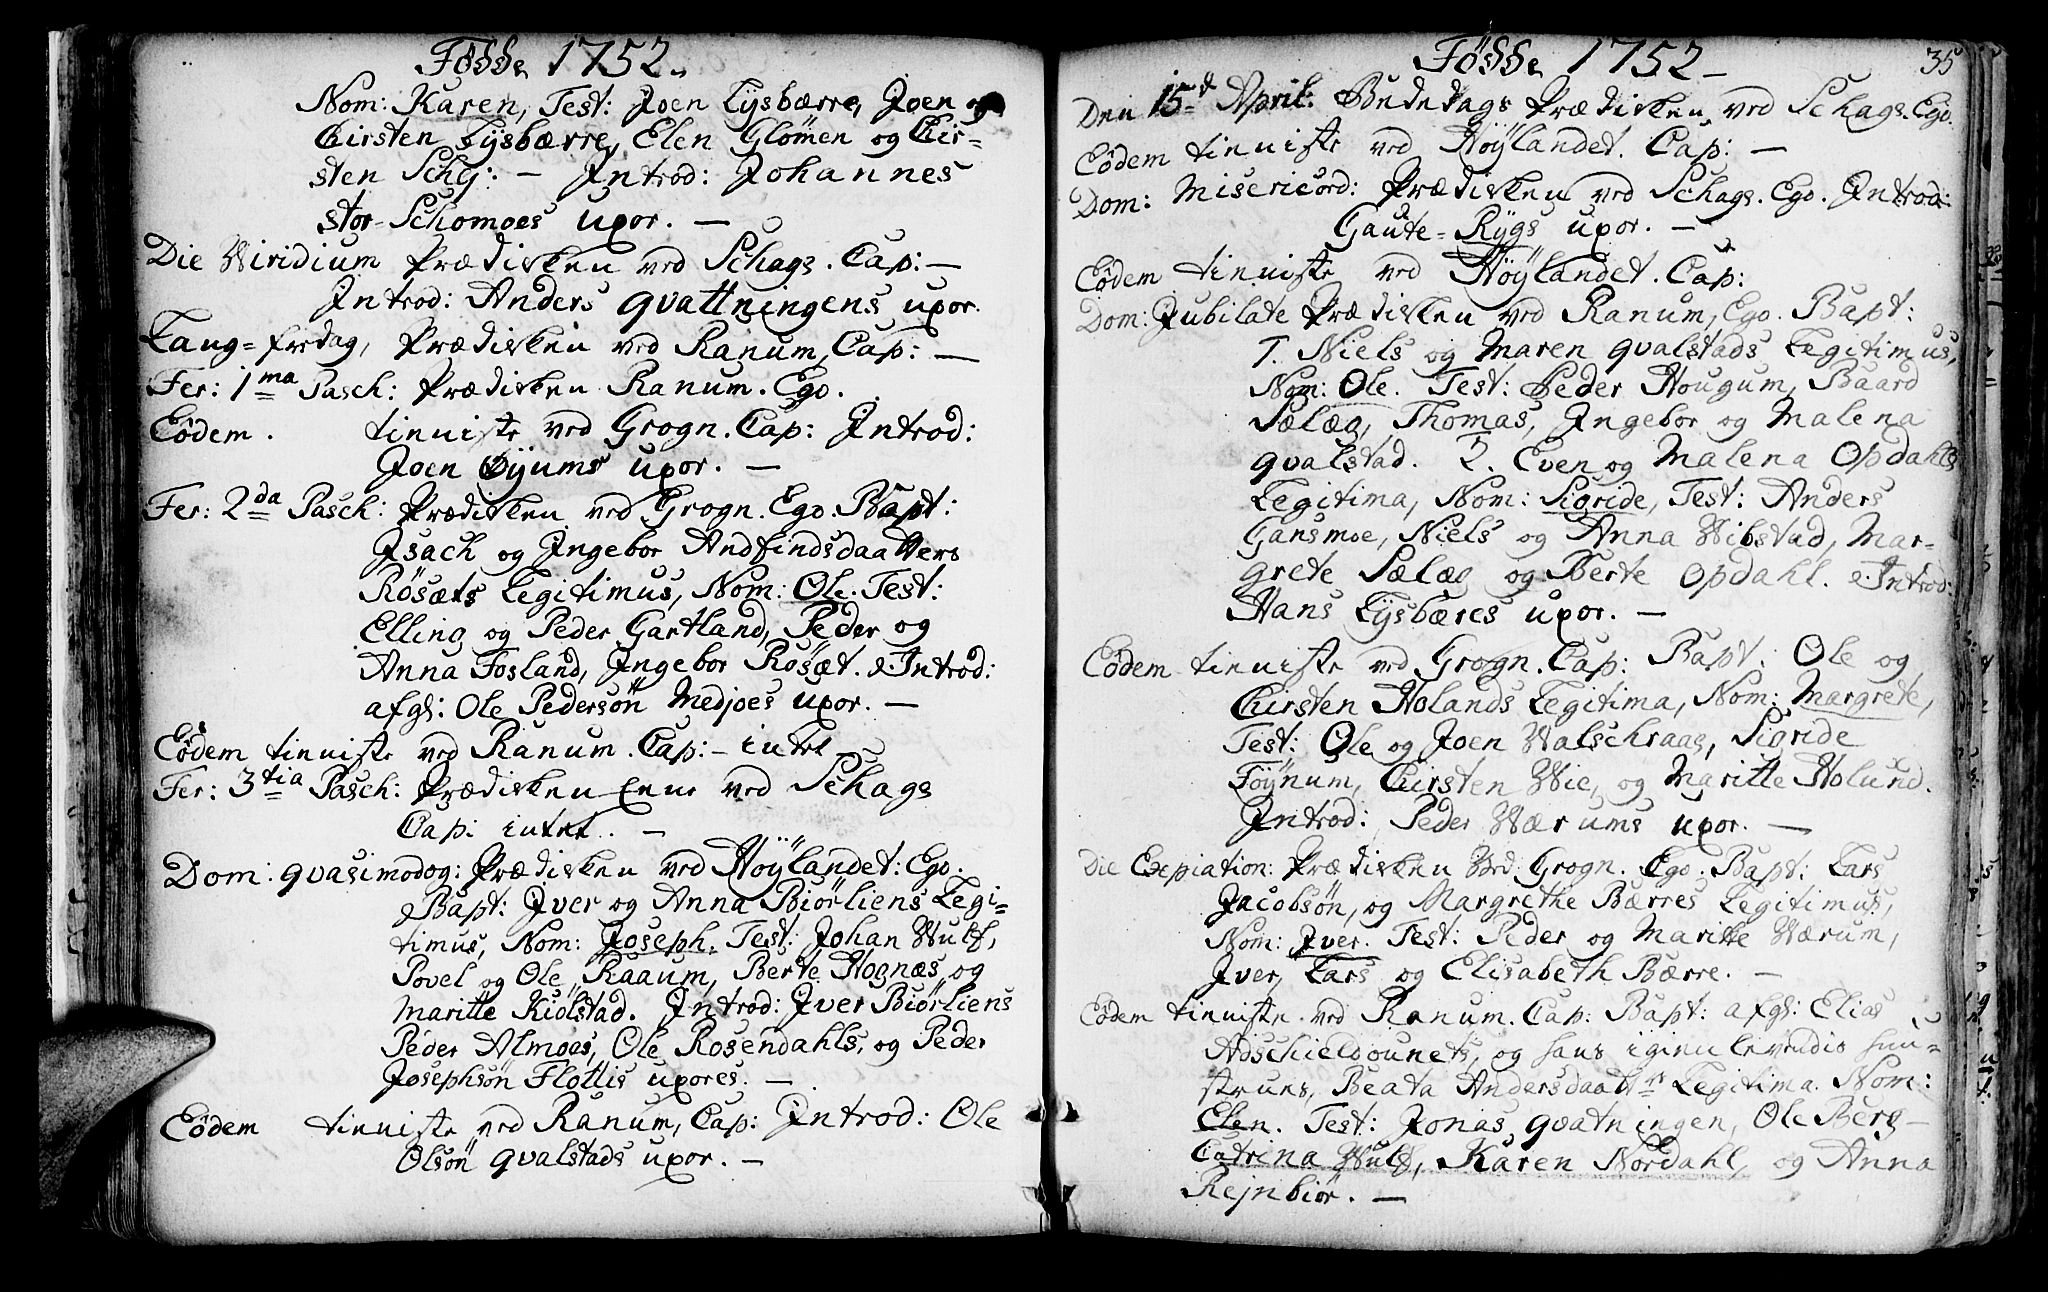 Födde 1752.
Nom: Karen, Test: Joen Lysbærre, Joen og
Kirsten Lysbærre, Elen Glömen og Kir-
sten Schg: — Introd: Johannes
stor-Schomoes uxor. —
Die Viridium Prædisken ved Schage. Cap: —
Introd: Anders qvattningens uxor.
Lang-fredag, Prædisken ved Ranum, Cap: —
Fer: 1ma Pasch: Prædisken Ranum. Ego.
Eödem. tienniste ved Grogn. Cap: Introd:
Joen Öyums uxor. —
Fer: 2da Pasch: Prædisken ved Grogn. Ego. Bapt:
Isach og Ingebor Andfindsdaatters
Rösæts Legitimus, Nom: Ole. Test:
Elling og Peder Gartland, Peder og
Anna Fosland, Ingebor Rösæt. Introd:
afgl: Ole Pedersön Medjoes uxor. —
Eödem tienniste ved Ranum. Cap: – intet
Fer: 3tia Pasch: Prædisken Ene ved Schage
Cap: intet. —
Dom: qvasimodog: Prædisken ved Höylandet: Ego.
Bapt: Iver og Anna Biörliens Legi-
timus, Nom: Joseph. Test: Johan Wulf,
Povel og Ole Raaum, Berte Hognæs og
Maritte Kiölstad. Introd: Iver Biörliens
Peder Almoes, Ole Rosendahls, og Peder
Josephsön Flottis uxores. —
Eödem tienniste ved Ranum, Cap: Introd: Ole
Olsön qvalstads uxor. —
Födde 1752 — 35
Den 15d April: Bededags Prædisken ved Schage. Ego.
Eödem tienniste ved Höylandet. Cap: —
Dom: Misericord: Prædisken ved Schage. Ego. Introd:
Gaute-Rygs uxor. —
Eödem tienniste ved Höylandet. Cap:
Dom: Jubilate Prædisken ved Ranum, Ego. Bapt:
1. Niels og Maren qvalstads Legitimus,
Nom: Ole. Test: Peder Hougum, Baard
Sælæg, Thomas, Ingebor og Malena
qvalstad. 2. Even og Malena Opdahls
Legitima, Nom: Sigride, Test: Anders
Gansmoe, Niels og Anna Vibstad, Mar-
grete Sælæg og Berte Opdahl. Introd:
Hans Lysbæres uxor. —
Eödem tienniste ved Grogn. Cap: Bapt: Ole og
Kirsten Holands Legitima, Nom: Margrete,
Test: Ole og Joen Walschraag, Sigride
Föynum, Kirsten Wie, og Maritte Holund.
Introd: Peder Wærums uxor. —
Die Exepiation: Prædisken Ved: Grogn. Ego. Bapt: Lars
Jacobsön, og Margrethe Bærres Legitimus,
Nom: Iver. Test: Peder og Maritte Wærum,
Iver, Lars og Elisabeth Bærre. —
Eödem tienniste ved Ranum. Cap: Bapt: afgl: Elias
og hans igienlevendis huu-
struns, Beata Andersdaattr Legitima. Nom:
Elen. Test: Jonas qvatningen, Ole Berg—
Catrina Wulf, Karen Nordahl, og Anna
Rejnbiör. —